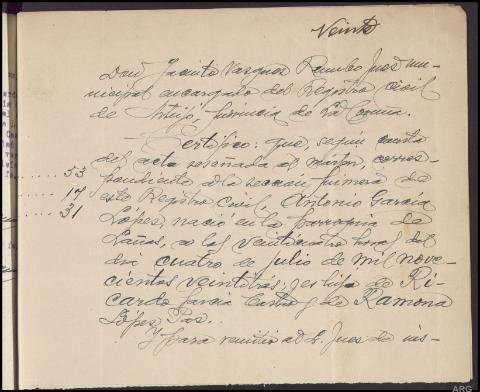 Veinte
Don Jacinto Vasquez Rumbo Juez mu-
nicipal encargado del Registro civil
de Arteijo, provincia de La Coruña.
Certifico: que, según consta
del acta reseñada al margen, corres-
pondiente a la sección primera de
este Registro Civil, Antonio García
López, nació en la parroquia de
Lañas, a las veinticuatro horas del
día cuatro de julio de mil nove-
cientos veintitrés; es hijo de Ri-
cardo García Castro y de Ramona
López Pas.
Y para remitir al Sr. Juez de ins-
.... 53
.... 17
.... 31
ARG